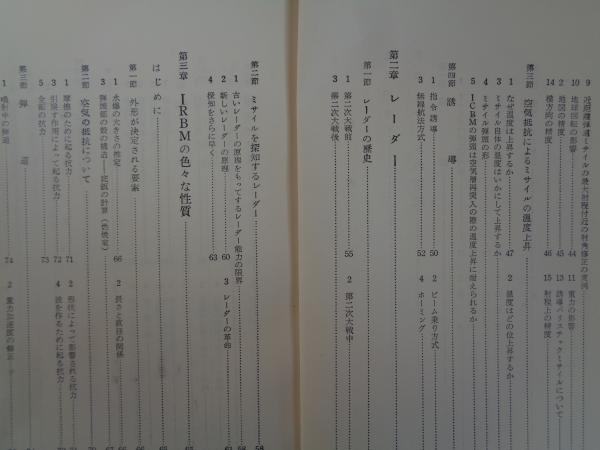 9 近距離弾道ミサイルの最大射程付近の射角修正の実例
10 地球回転の影響 44 11 重力の影響
2 地図の精度 45 13 誘導バリスチックミサイルについて
14 横方向の精度 46 15 射程上の精度
第三節 空気抵抗によるミサイルの温度上昇
1 なぜ温度は上昇するか 47 2 温度はどの位上昇するか
3 ミサイル自体の温度はいかにして上昇するか
4 ミサイル弾頭の形
5 ICBMの弾頭は空気層再突入の際の温度上昇に耐えられるか
第四節 誘導
1 指令誘導 50 2 ビーム乗り方式
3 無線航法方式 52 4 ホーミング
第二章 レーダー
第一節 レーダーの歴史
1 第二次大戦前 55 2 第二次大戦中
3 第二次大戦後
第二節 ミサイルを探知するレーダー 58
1 古いレーダーの原理をもってするレーダー能力の限界 58
2 新しいレーダーの原理 60 3 レーダーの革命 61
4 探知をさらに早く 63
第三章 IRBMの色々な性質 65
はじめに 65
第一節 外形が決定される要素 66
1 水爆の大きさの推定 66 2 長さと直径の関係 67
3 弾頭部の殻の構造
第二節 空気の抵抗について
1 摩擦のために起る抗力 71 2 形状によって影響される抗力
3 引戻す作用によって起る抗力 72 4 波を作るために起る抗力
5 全部の抗力 73
第三節 弾道
1 噴射中の弾道 74 2 重力加速度の修正